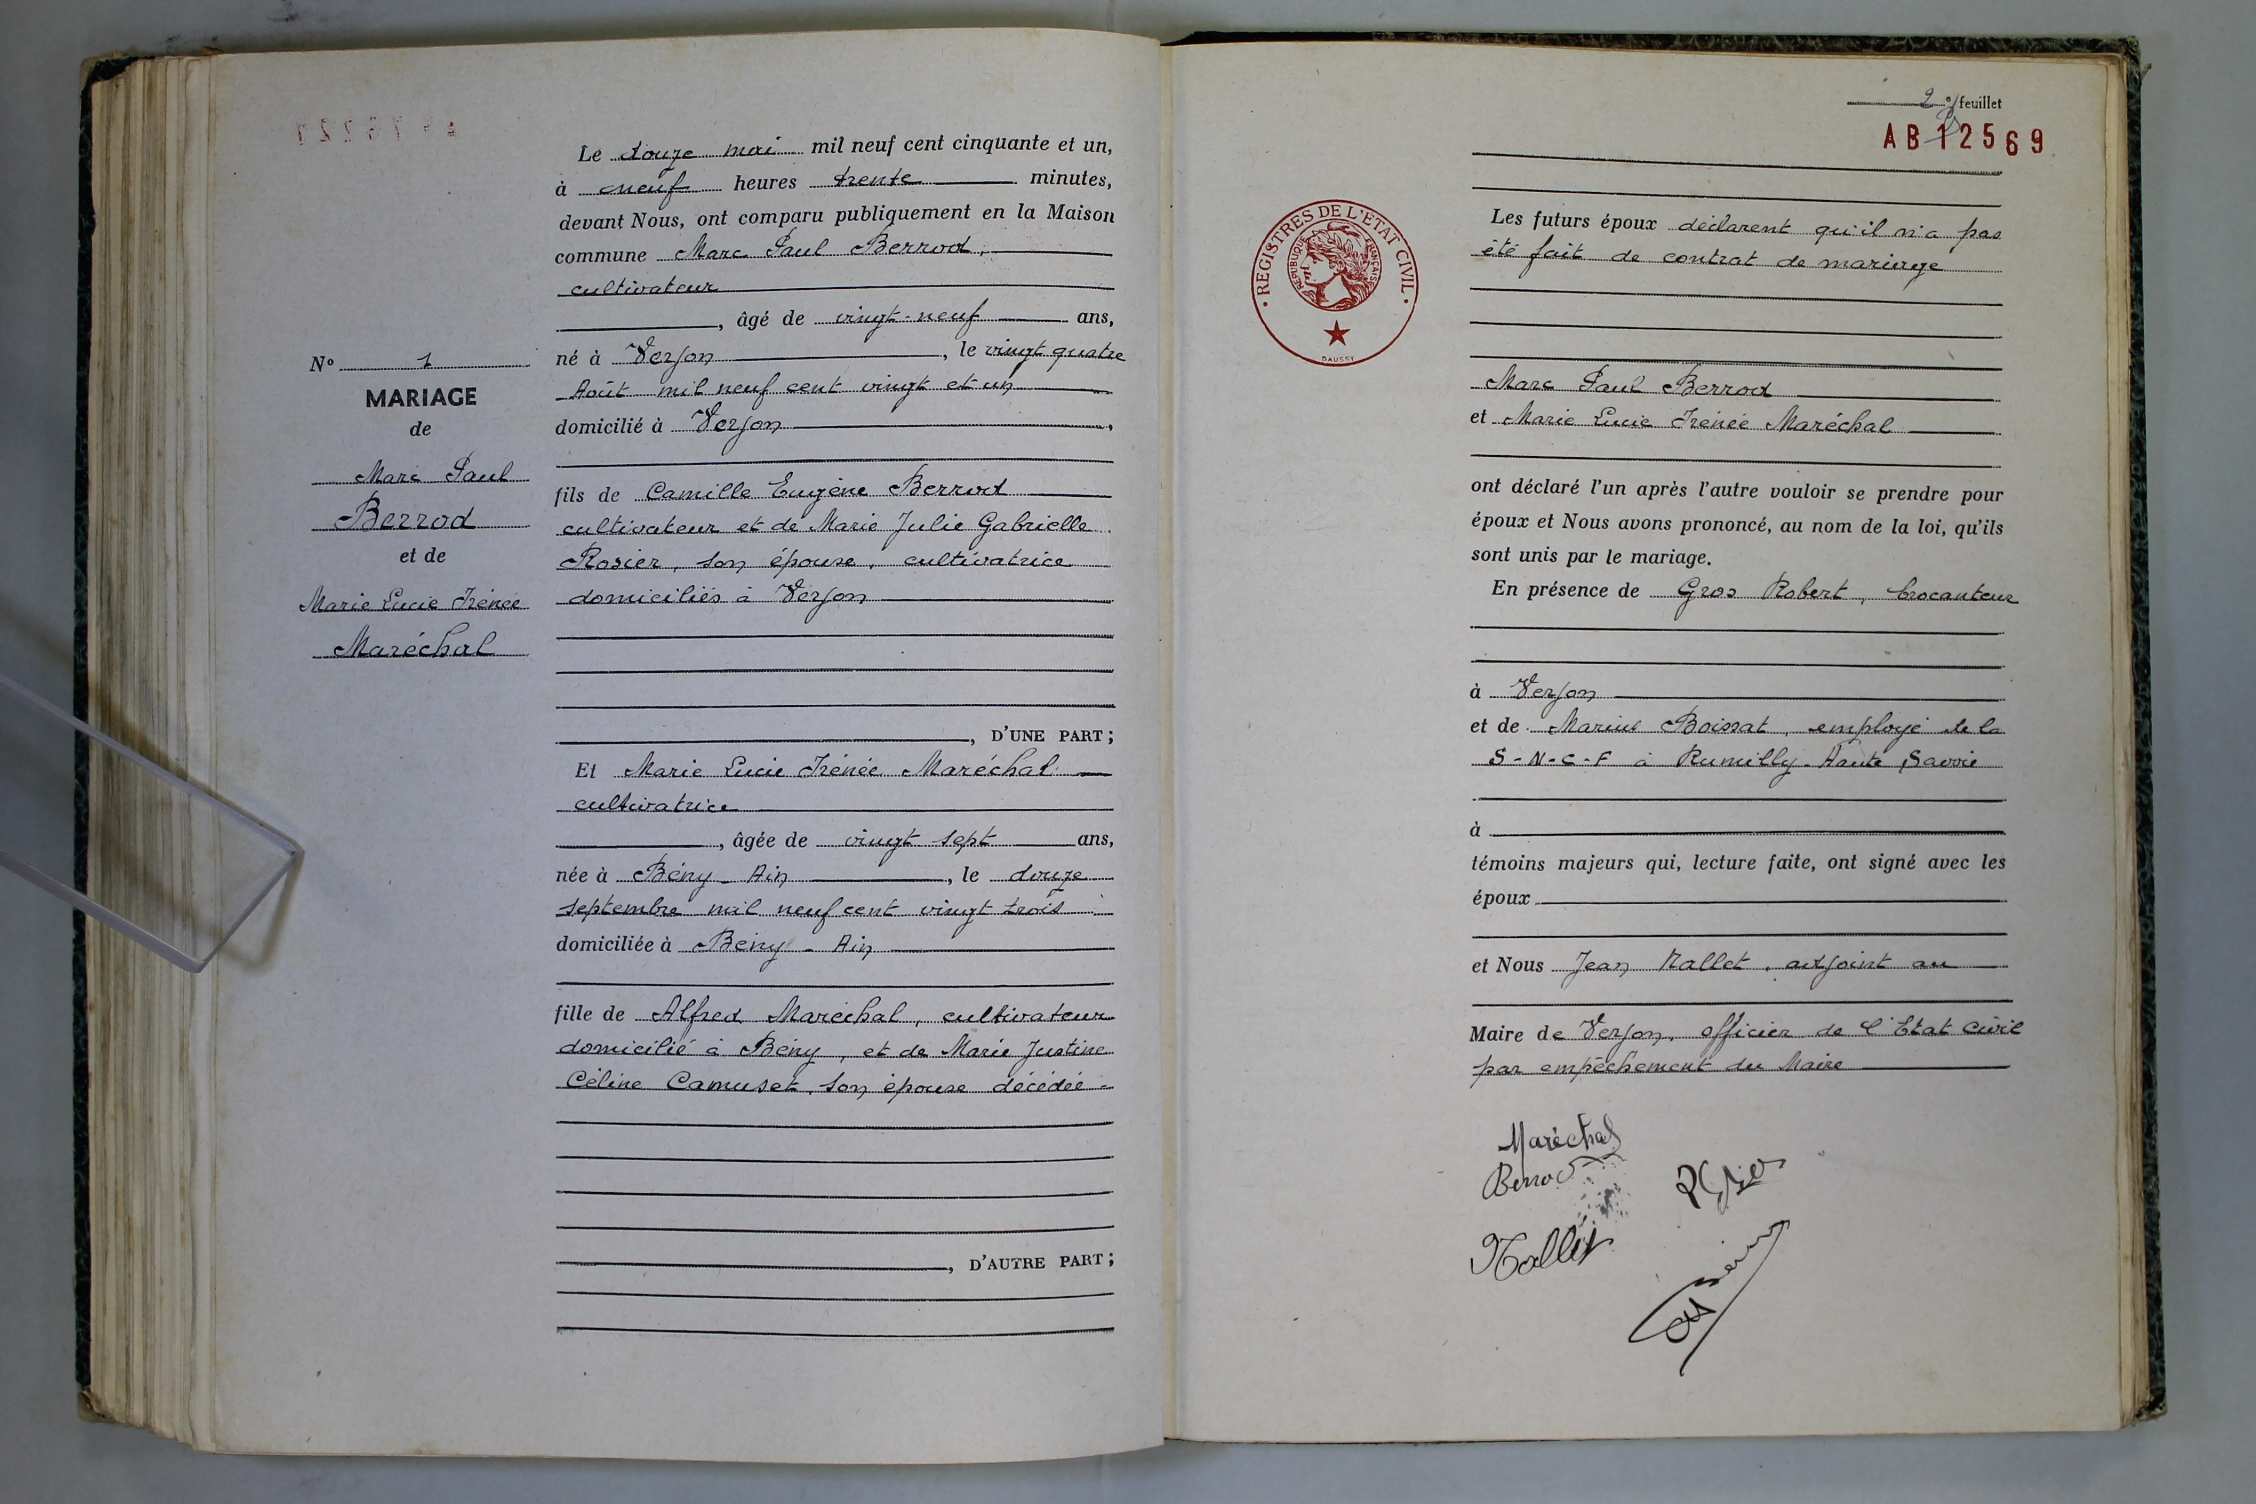 Le douze mai mil neuf cent cinquante et un,
à neuf heures trente minutes,
devant Nous, ont comparu publiquement en la Maison
commune Marc Paul Berrod,
cultivateur
, âgé de vingt-neuf ans,
né à Verjon, le vingt quatre
Août mil neuf cent vingt et un
domicilié à Verjon,
fils de Camille Eugène Berrod
cultivateur et de Marie Julie Gabrielle
Rosier, son épouse, cultivatrice
domiciliés à Verjon
, D'UNE PART ;
Et Marie Lucie Irénée Maréchal
cultivatrice
, âgée de vingt sept ans,
née à Bény - Ain, le douze
septembre mil neuf cent vingt trois
domiciliée à Bény - Ain
fille de Alfred Maréchal, cultivateur
domicilié à Bény, et de Marie Justine
Céline Camuset, son épouse décédée -
, D'AUTRE PART ;
No 1
MARIAGE
de
Marc Paul
Berrod
et de
Marie Lucie Irénée
Maréchal
2e feuillet
AB 12569
REGISTRES DE L'ETAT CIVIL
REPUBLIQUE FRANÇAISE
DAUSSY
Les futurs époux déclarent qu'il n'a pas
été fait de contrat de mariage
Marc Paul Berrod
et Marie Lucie Irénée Maréchal
ont déclaré l'un après l'autre vouloir se prendre pour
époux et Nous avons prononcé, au nom de la loi, qu'ils
sont unis par le mariage.
En présence de Gros Robert, brocanteur
à Verjon
et de Marius Boissat, employé de la
S-N-C-F à Rumilly - Haute Savoie
à
témoins majeurs qui, lecture faite, ont signé avec les
époux
et Nous Jean Nallet, adjoint au
Maire de Verjon, officier de l'Etat Civil
par empêchement du Maire
Maréchal
Berrod
RGros
Nallet